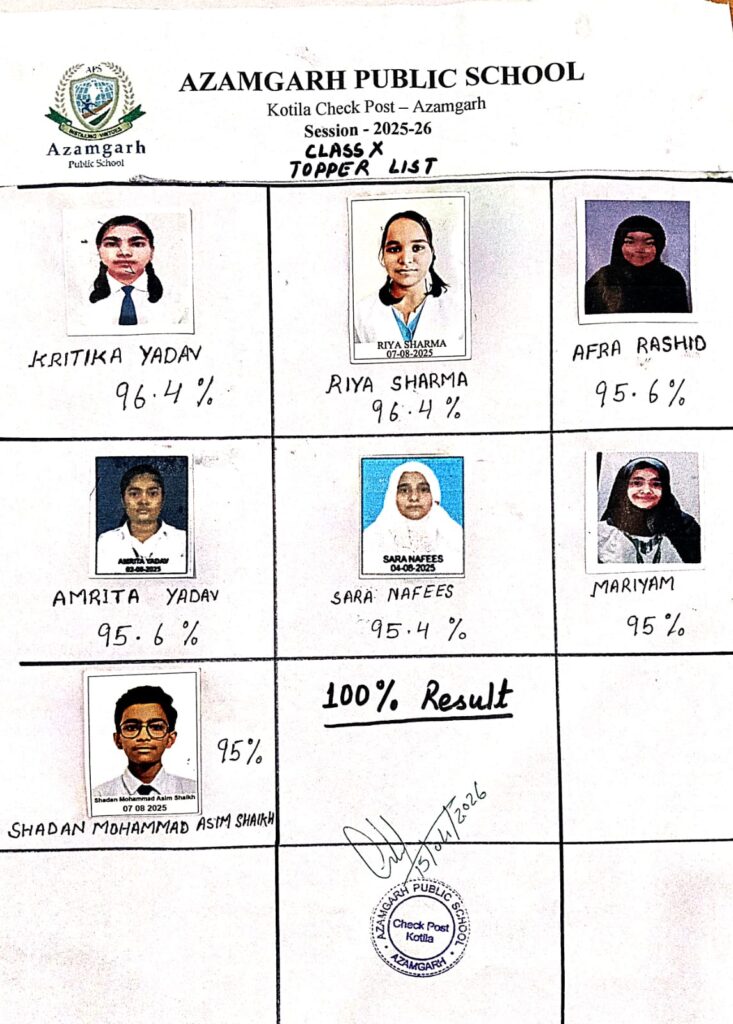 APS
INSTILLING VIRTUES
Azamgarh
Public School
AZAMGARH PUBLIC SCHOOL
Kotila Check Post – Azamgarh
Session - 2025-26
CLASS X
TOPPER LIST
RIYA SHARMA
07-08-2025
KRITIKA YADAV
96.4 %
RIYA SHARMA
96.4 %
AFRA RASHID
95.6 %
AMRITA YADAV
02-08-2025
SARA NAFEES
04-08-2025
AMRITA YADAV
95.6 %
SARA NAFEES
95.4 %
MARIYAM
95 %
Shadan Mohammad Asim Shaikh
07 08 2025
95%
SHADAN MOHAMMAD ASIM SHAIKH
100% Result
15/04/2026
AZAMGARH PUBLIC SCHOOL
Check Post
Kotila
AZAMGARH